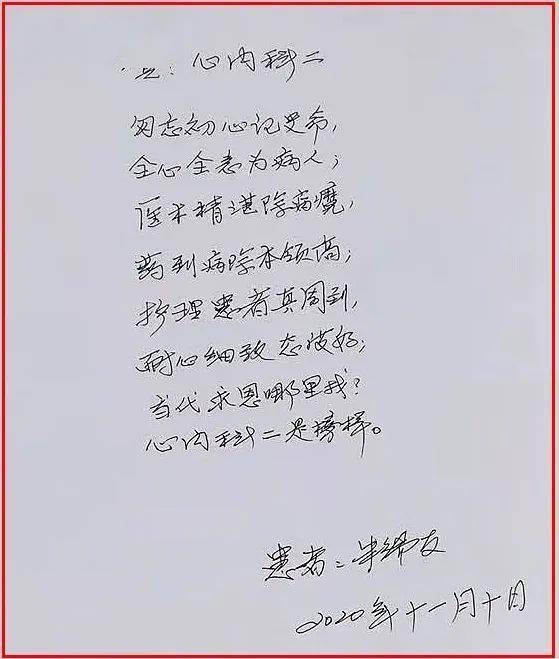 心内科二
勿忘初心记使命，
全心全意为病人；
医术精湛除病魔，
药到病除本领高；
护理患者真周到，
耐心细致态度好；
当代求恩哪里找？
心内科二是榜样。
患者：
2020年十一月十日